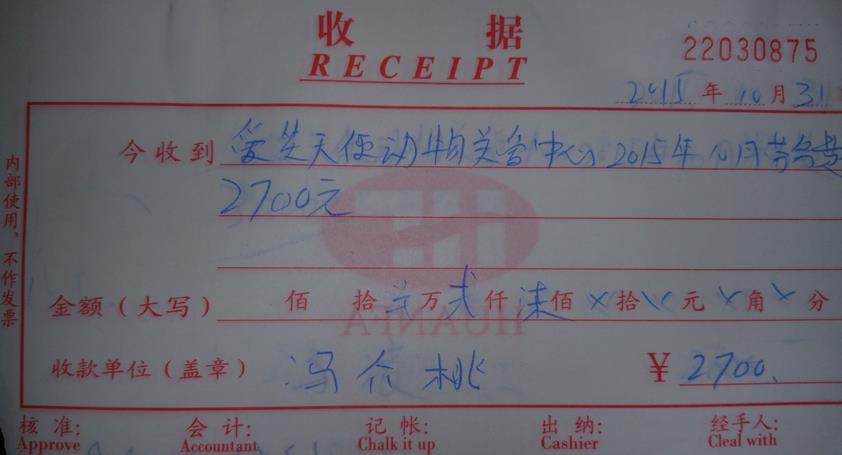 收 据
RECEIPT
22030875
2015 年 10 月 31
今收到 爱学天使动物关爱中心 2015年10月劳务费
2700元
金额（大写） 佰 拾 万 贰 仟 柒 佰 × 拾 × 元 × 角 × 分
收款单位（盖章） 冯介桃 ¥ 2700.
核 准: 会 计: 记 帐: 出 纳: 经手人:
Approve Accountant Chalk it up Cashier Cleal with
内部使用，不作发票
HUANFA